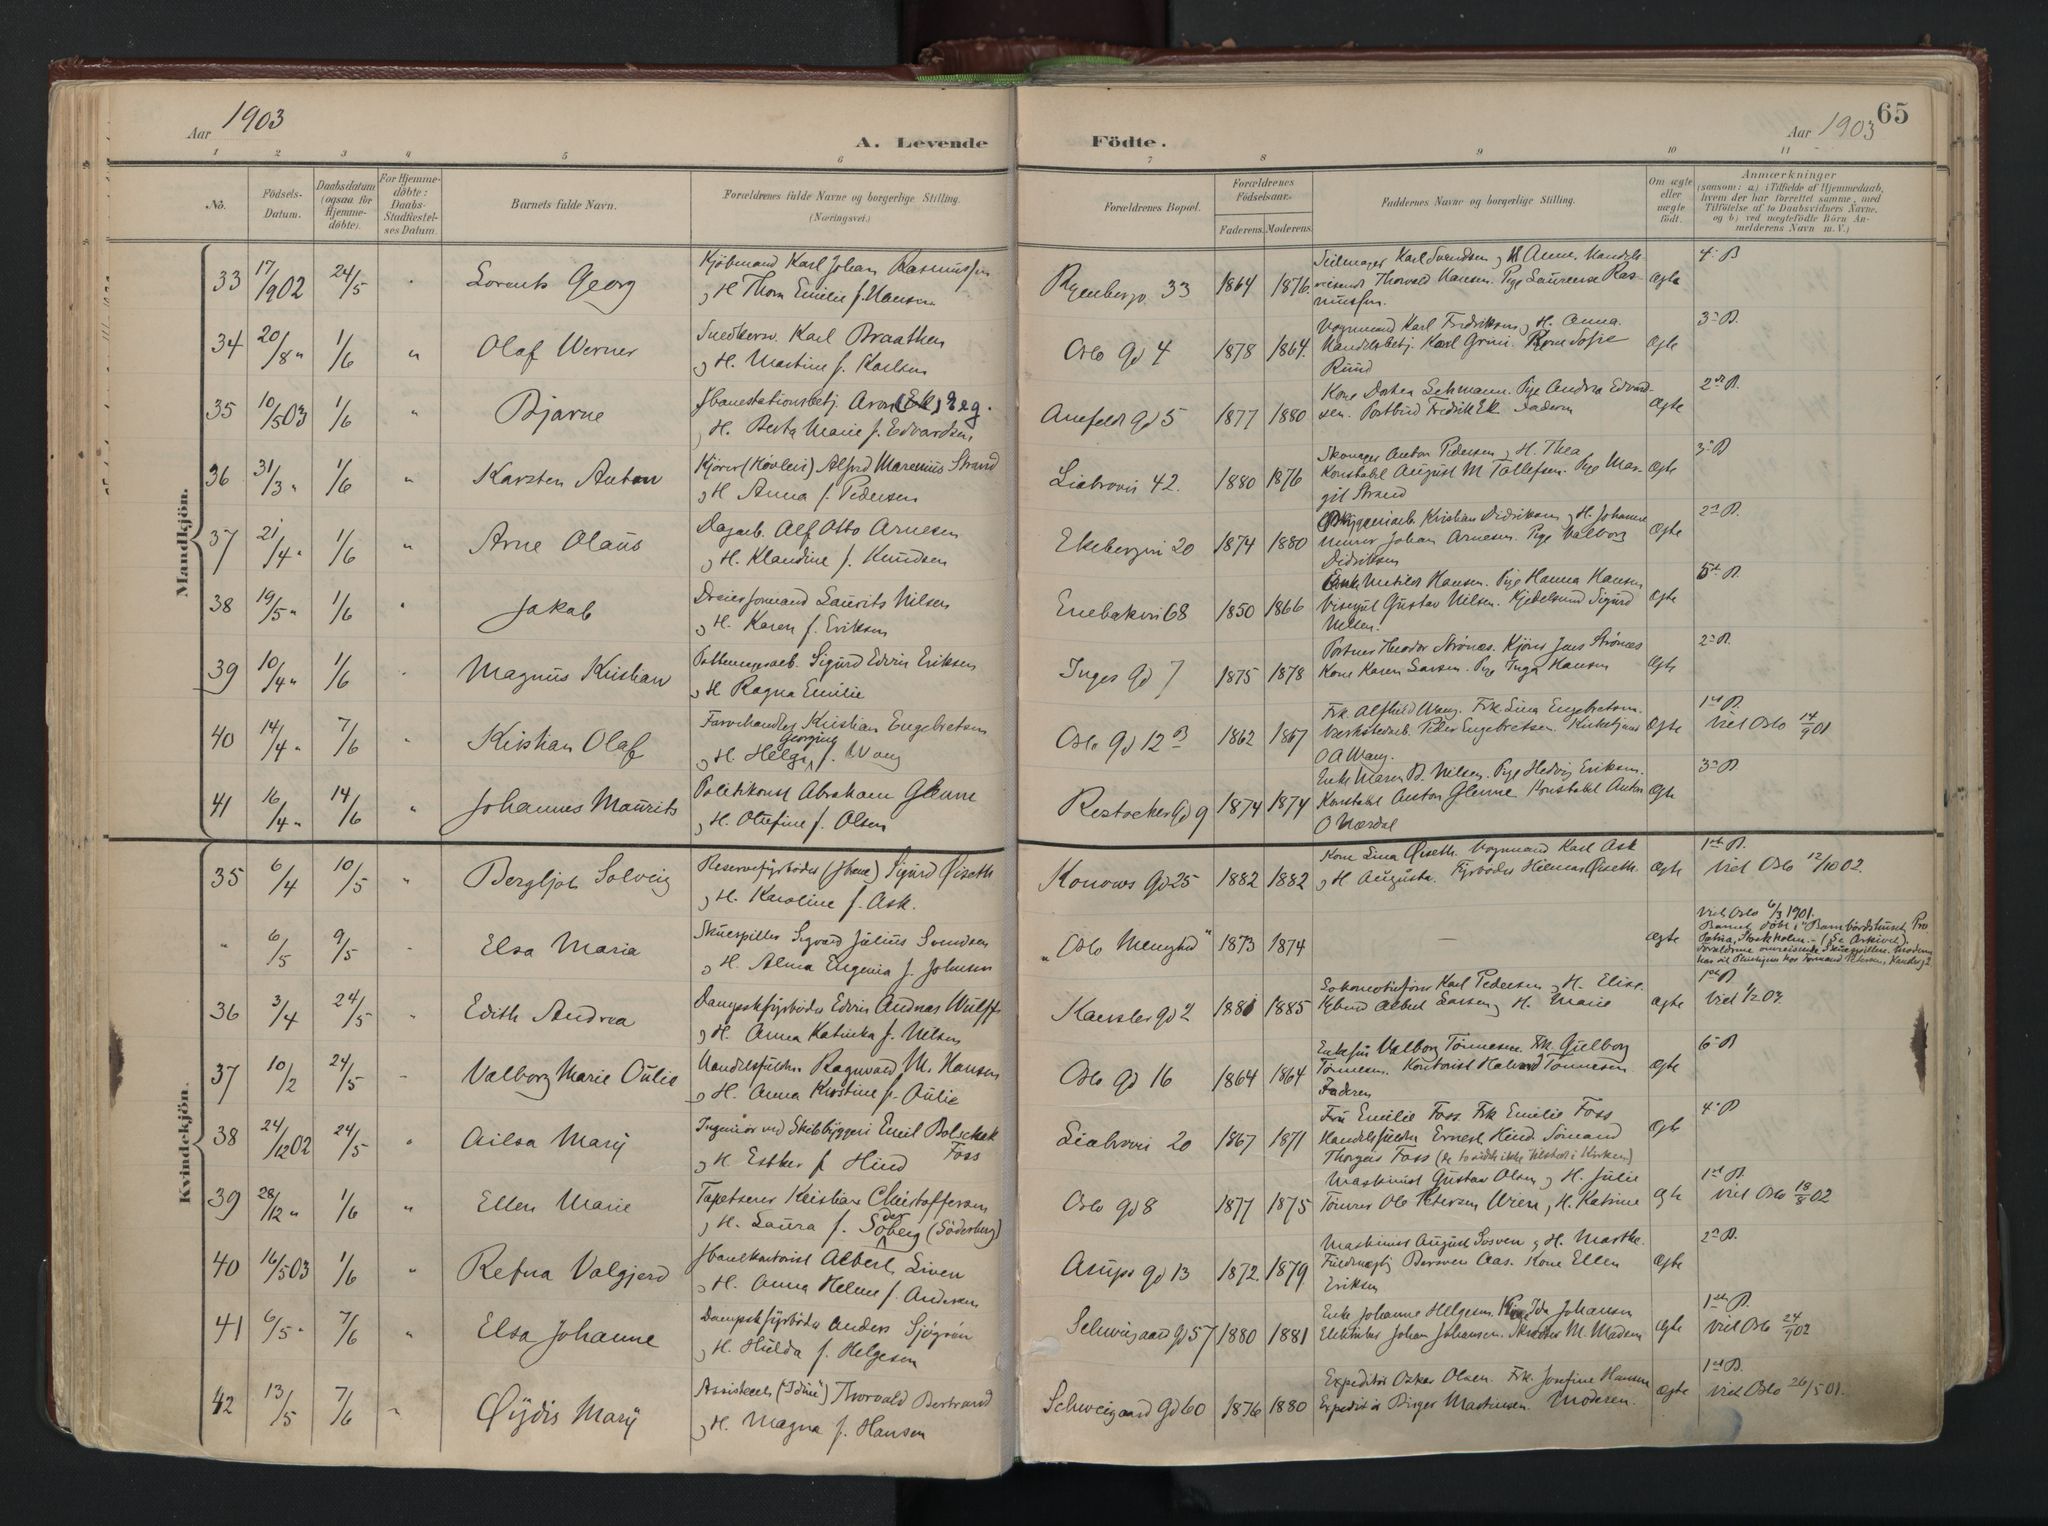 Aar 1903
A. Levende
Födte.
Aar 1903
65
1 2 3 4 5 6 7 8 9 10 11
No.
Födsels-
Datum.
Daabsdatum
(ogsaa for
Hjemme-
döbte).
For Hjemme-
döbte:
Daabs-
Stadfæstel-
ses Datum.
Barnets fulde Navn.
Forældrenes fulde Navne og borgerlige Stilling.
(Næringsvei.)
Forældrenes Bopæl.
Forældrenes
Födselsaar.
Faderens. Moderens.
Faddernes Navne og borgerlige Stilling.
Om ægte
eller
uægte
födt.
Anmærkninger
(saasom: a) i Tilfælde af Hjemmedaab,
hvem der har forrettet samme, med
Tilföielse af to Daabsvidners Navne,
og b) ved uægtefödte Börn An-
melderens Navn m. V.)
Mandkjön.
33 17/902 24/5 Lorents Georg
Kjöbmand Karl Johan Rasmussen
H. Thora Emilie f. Hansen
Ryenbergv. 33 1864 1876
Seilmager Karl Svendsen og H. Anna. Handels-
reisende Thorvald Hansen. Pige Laurense Ras-
mussen.
Ægte 4 B
34 20/8 " 1/6 " Olaf Werner
Snedkersv. Karl Braathen
og H. Martine f. Karlsen
Oslo Gd 4 1878 1864
Vognmand Karl Fredriksen og H. Anna.
Handelsbetj. Karl Grini. Sofie
Ruud
Ægte 3 B.
35 10/503 1/6 " Bjarne
Jbanestationsbetj. Aron (Ek) Eeg.
og H. Berta Marie f. Edvardsen
Gd 5 1877 1880
Kone Dorthea Lehmann. Pige Andrea Edvard-
sen. Postbud Fredrik Ek. Faderen
Ægte 2 B.
36 31/3 " 1/6 " Karsten Anton
Kjörer (Hövleri) Alfred Marenius Strand
og H. Anna f. Pedersen
Liabrovei 42. 1880 1876
Skomager Anton Pedersen og H. Thea
Konstabel August M Tollefsen. Pige Mar-
git Strand
Ægte 3 B
37 21/4 " 1/6 " Arne Olaus
Dagarb. Alf Otto Arnesen
og H. Klaudine f. Knudsen
Ekebergvei 20 1874 1880
Bryggeriarb. Kristian Didriksen og H. Johanne
Murer Johan Arnesen. Pige Valborg
Didriksen
Ægte 2 B.
38 19/5 " 1/6 " Jakob
Dreierformand Laurits Nilsen
og H. Karen f. Eriksen
Enebakvei 68 1850 1866
Enke Matilde Hansen. Pige Hanna Hansen
Visergut Gustav Nilsen. Kjedelsmed Sigurd
Nilsen.
Ægte 5 B.
39 10/4 " 1/6 Magnus Kristian
Sigurd Edvin Eriksen
og H Ragna Emilie
Inges Gd 7 1875 1878
Portner Theodor Strönæs. Kjörer Jens Strönæs
Kone Karen Larsen. Pige Inga Hansen
Ægte 2 B.
40 14/4 " 7/6 Kristian Olaf
Farvehandler Kristian Engebretsen
og H. Helga Georgine f. Wang
Oslo Gd 12 B 1862 1867
Frk. Alfhild Wang. Frk. Lina Engebretsen.
Værkstedarb. Peder Engebretsen. Kirketjener
O A Wang.
Ægte 1st B.
Viet Oslo 14/9 01
41 16/4 " 14/6 " Johannes Maurits
Politikonst Abraham Glenne
og H. Olufine f. Olsen
Gd 9 1874 1874
Enke Maren B. Nilsen. Pige Hedvig Eriksen.
Konstabel Anton Glenne Konstabel Anton
O Nærdal
Ægte 3 B
Kvindekjön.
35 6/4 10/5 " Bergljot Solveig
Reservefyrböder (Jbane) Sigurd Øiseth
og H. Karoline f. Ask.
Konows Gd 25 1882 1882
Kone Lina Øiseth. Vognmand Karl Ask
og H Augusta. Fyrböder Hilmar Øiseth.
Ægte 1st B.
Viet Oslo 12/10 02.
" 6/5 9/5 Elsa Maria
Skuespiller Sigvard Julius Svendsen
og H. Alma Eugenia f. Johnsen
"Oslo Menighed" 1873 1874
—
Ægte
Viet Oslo 6/3 1901.
Barnet döbt i "Barnbördshuset Pro
Patria, Stockholm. - (Se Arkivet).
Forældrene omreisende Skuespillere.
36 3/4 24/5 Edith Andrea
Dampskfyrböder Edvin Andreas Wulff
og H. Anna Katinka f. Nilsen
Kansler Gd 2 1881 1885
Lokomotivförer Karl Pedersen og H. Elise.
Albert Larsen og H. Marie
Ægte 1st B
Viet 1/2 03.
37 10/2 24/5 Valborg Marie Oulie
Handelsfuldm. Ragnvald M. Hansen
og H. Anna Kirstine f. Oulie
Oslo Gd 16 1864 1864
Enkefru Valborg Tönnesen. Frk. Guelborg
Tönnesen. Kontorist Halvard Tönnesen
Faderen
Ægte 6 B
38 24/1202 24/5 Ailsa Mary
Ingeniör ved Skibbyggeri Emil Foss
og H. Esther f. Hind
Liabrovei 20 1867 1871
Fru Emilie Foss. Frk Emilie Foss
Handelsfuldm Ernest Hind. Sömand
Thorgeir Foss (de to sidste ikke tilstede i Kirken)
Ægte 4 B
39 28/12 " 1/6 " Ellen Marie
Tapetserer Kristian Christoffersen
og H. Laura f. Söderberg (Söderberg)
Oslo gd 8 1877 1875
Maskinist Gustav Olsen og H. Julie
Tömrer Ole Petersen Wien og H. Katrine
Ægte 1st B.
Viet Oslo 18/8 02
40 16/503 1/6 " Refna Valgjerd
Jbanekontorist Albert Liven
og H. Anna Helene f. Andersen
Arups Gd 13 1872. 1879.
Maskinist August Losven og H. Marthe.
Bersven Aas. Kone Ellen
Eriksen
Ægte 2 B.
41 6/5 " 7/6 " Elsa Johanne
Dampskfyrböder Anders Sjögren
og H. Hulda f. Helgesen
Schweigaard Gd 57 1880 1881
Enke Johanne Helgesen. Ida Johansen
Johan Johansen. M. Madsen
Ægte 1st B.
Viet Oslo 24/9 02
42 13/5 7/6 " Øydis Mary
Assistent ("Idun") Thorvald Bertrand
og H. Magna f. Hansen
Schweigaard Gd 60 1876 1880
Expeditör Oskar Olsen. Frk. Josefine Hansen
Expeditör Birger Martinsen. Moderen.
Ægte 1st B.
Viet Oslo 26/5 01.